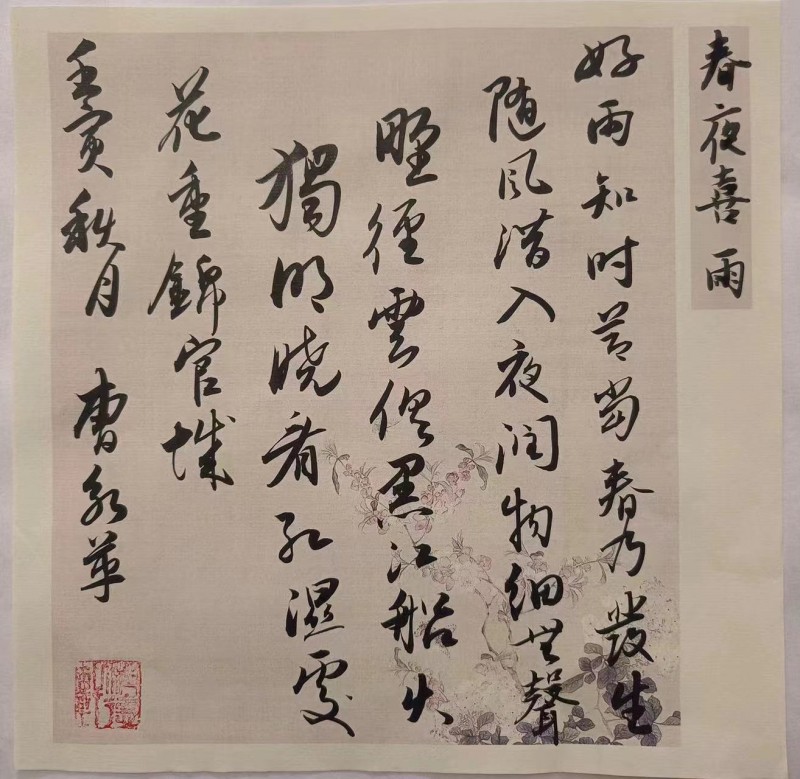 春夜喜雨
好雨知时节当春乃發生
随风潜入夜润物细無聲
野径雲俱黑江船火
獨明晓看红濕處
花重錦官城
壬寅秋月 曹永革